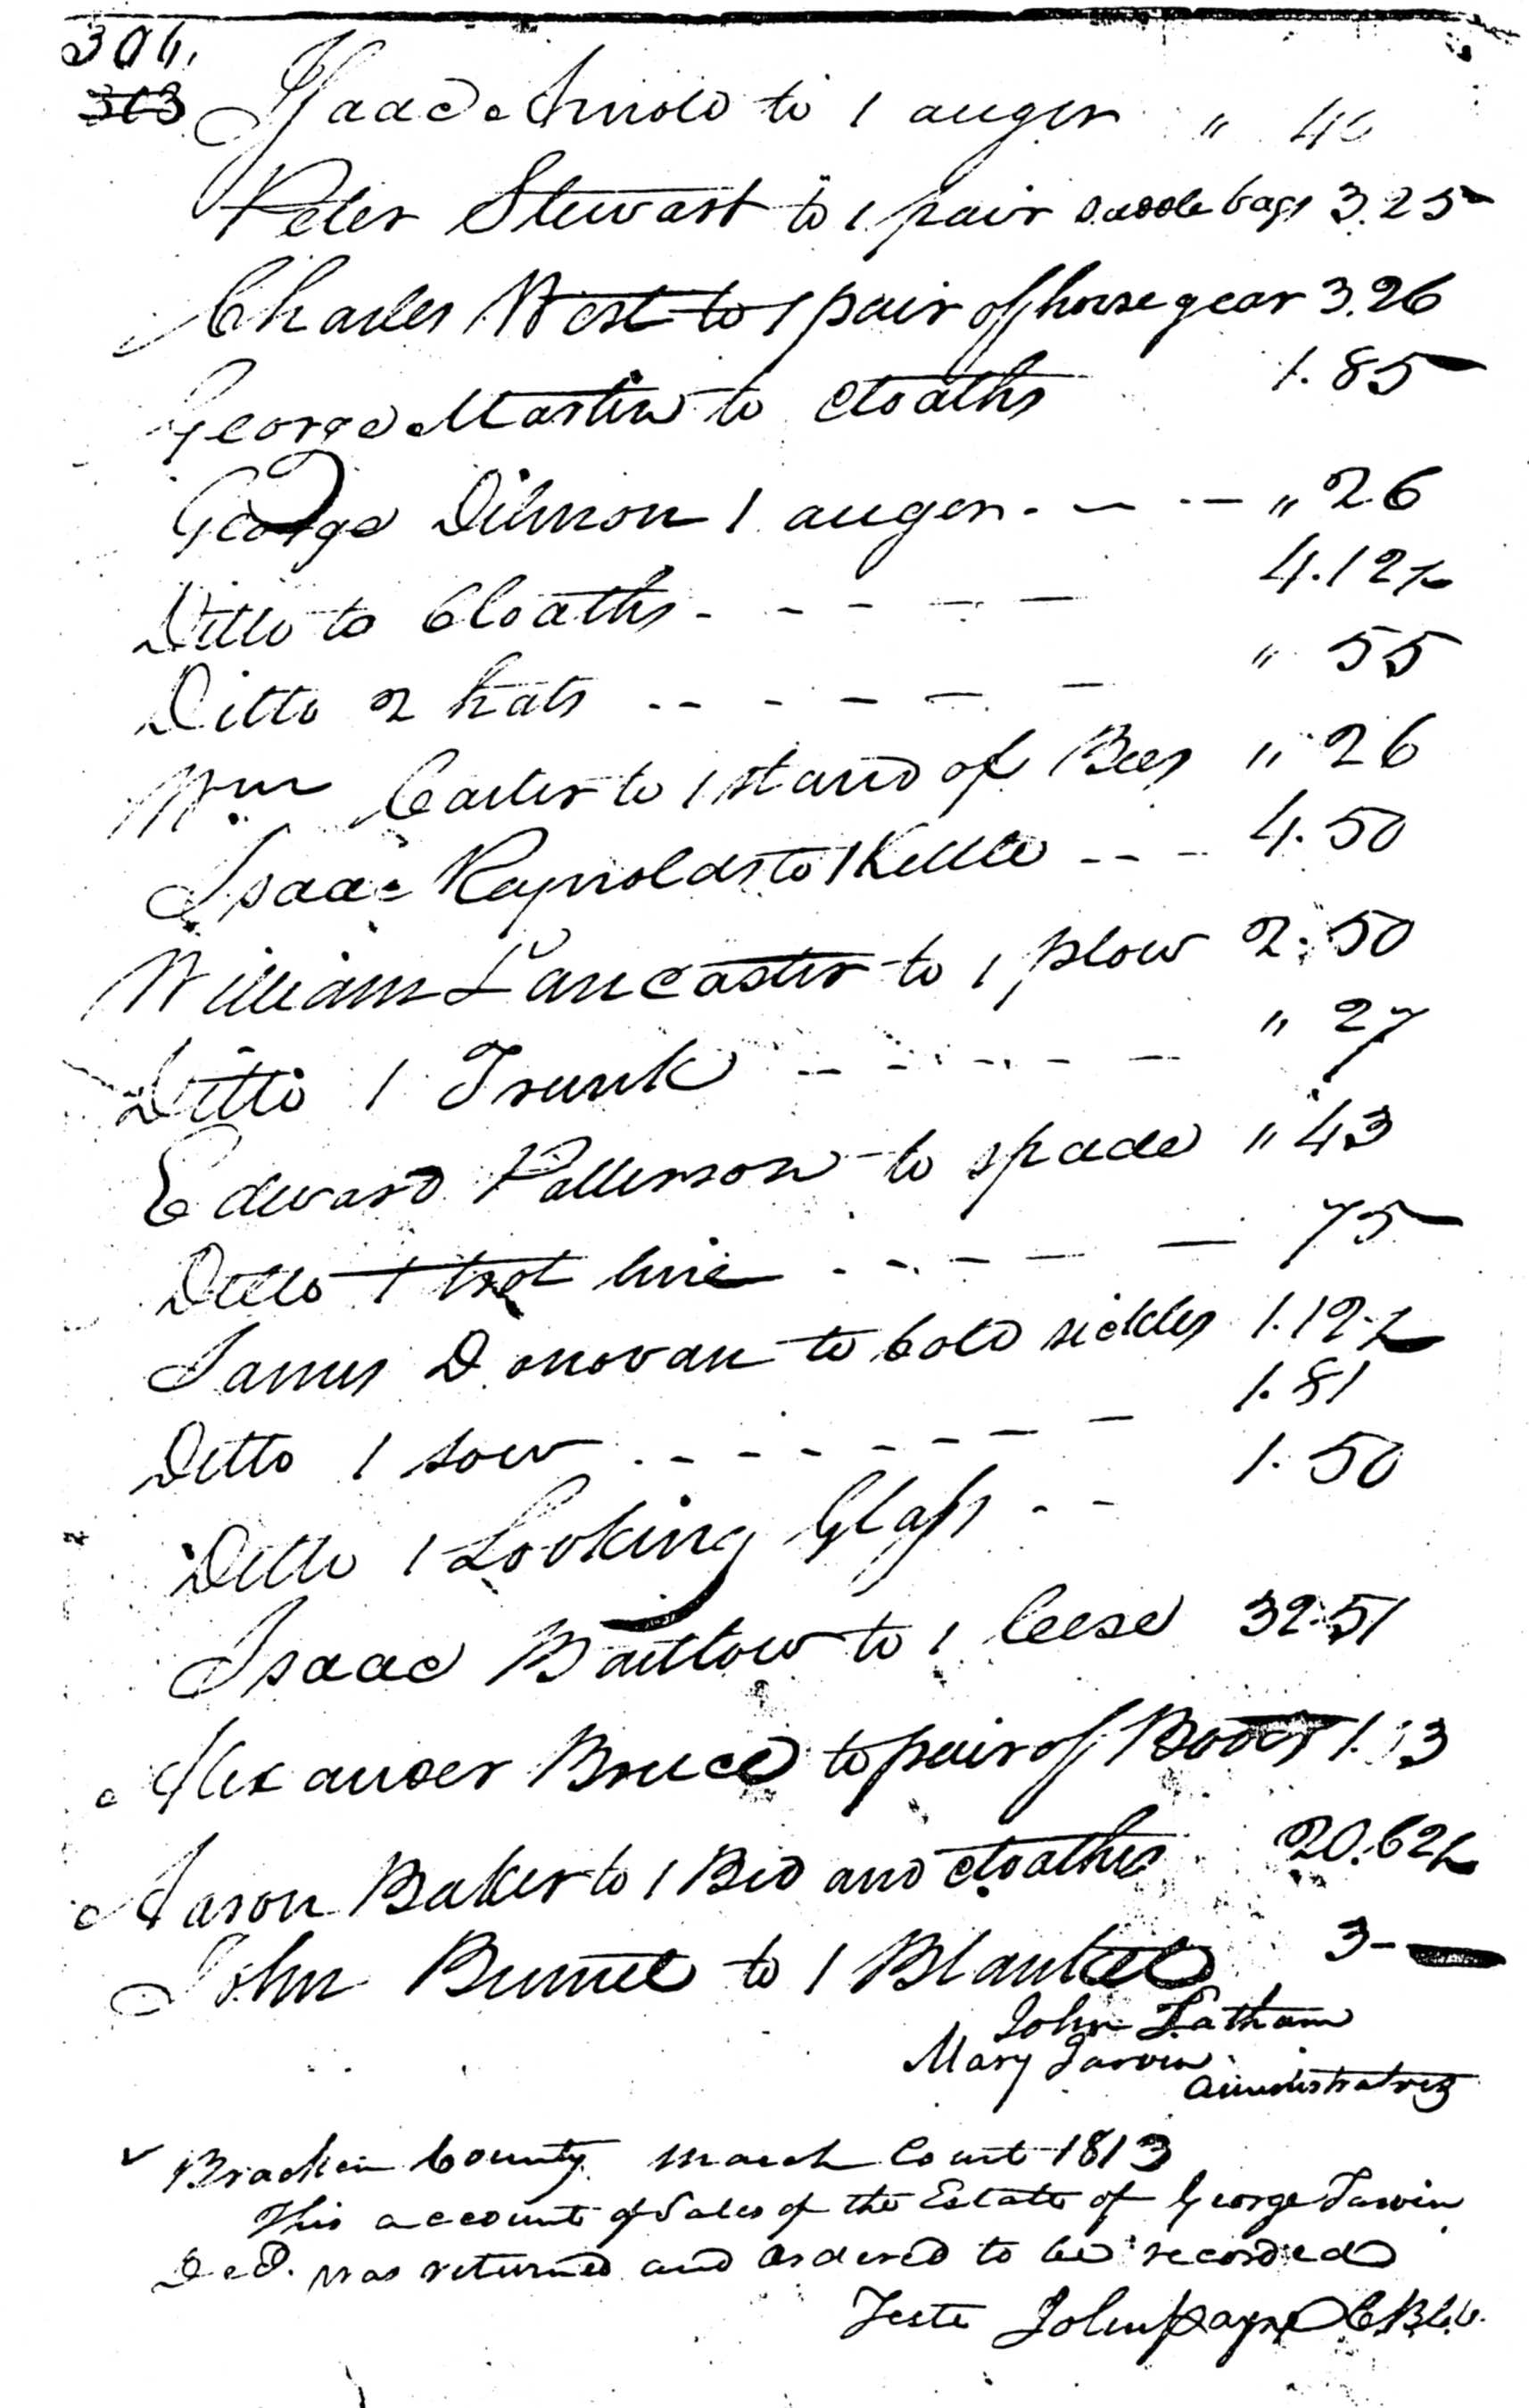 304.
303
Isaac Arnold to 1 auger " 40
Peter Stewart to 1 pair saddle bags 3.25
Charles West to 1 pair of horse gear 3.26
George Martin to Cloaths 1.85
George Dilmon 1 auger - - - " 26
Ditto to Cloaths - - - - - 4.12½
Ditto 2 hats - - - - - - " 55
Wm Carter to 1 stand of Bees " 26
Isaac Reynolds to 1 Kettle - - - 4.50
William Lancaster to 1 plow 2.50
Ditto 1 Trunk - - - - - - " 27
Edward Patterson to spade " 43
Ditto 1 trot line - - - - - - 75
James Donovan to 6 old sickles 1.12½
Ditto 1 sow - - - - - - - - 1.81
Ditto 1 Looking Glass - - 1.50
Isaac to 1 32.51
Alexander Bruce to pair of Boots
Aaron Baker to 1 Bed and cloathes 20.62½
John to 1 Blanket 3 -
John Latham
Mary Jarvin
administratrix
Bracken County March Court 1813
This account of Sales of the Estate of George Jarvin
Decd. was returned and ordered to be recorded
Teste John Payne C.B.C.C.